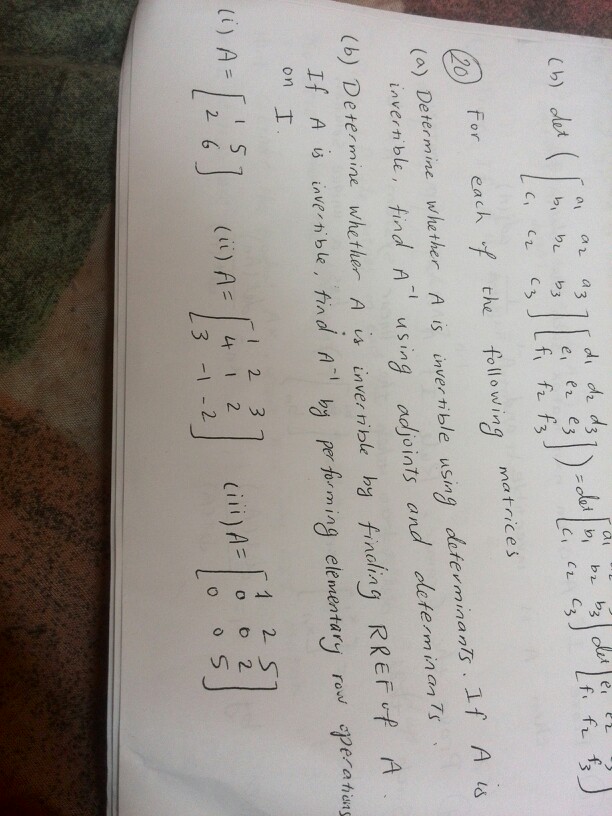 (b) det ( [ a1 a2 a3 ] [ d1 d2 d3 ] ) = det [ a1
b1 b2 b3 e1 e2 e3 b1 b2 b3 det e1 e2
c1 c2 c3 f1 f2 f3 c1 c2 c3 f1 f2 f3 )
(20) For each of the following matrices
(a) Determine whether A is invertible using determinants. If A is
invertible, find A⁻¹ using adjoints and determinants.
(b) Determine whether A is invertible by finding RREF of A.
If A is invertible, find A⁻¹ by performing elementary row operations
on I.
(i) A = [ 1 5 ] (ii) A = [ 1 2 3 ] (iii) A = [ 1 2 5 ]
2 6 4 1 2 0 0 2
3 -1 -2 0 0 5